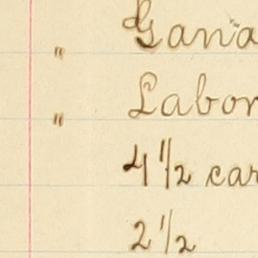 "
" Labor
4 1/2 car
2 1/2